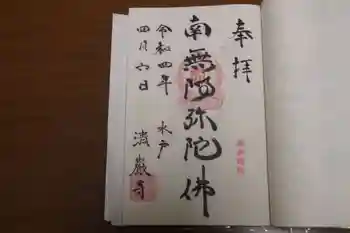 奉拝
南無阿弥陀佛
水戸
清巌寺
令和四年
四月六日